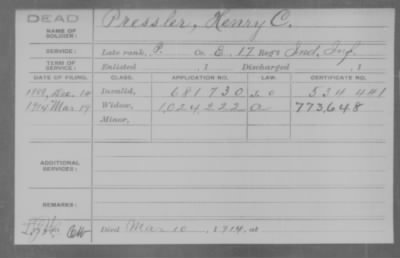 DEAD
NAME OF SOLDIER: Pressler, Henry C.
SERVICE: Late rank, P. Co. E, 17 Reg't Ind. Inf.
TERM OF SERVICE: Enlisted , 1 Discharged , 1
DATE OF FILING. CLASS. APPLICATION NO. LAW. CERTIFICATE NO.
Invalid, 681730 534441
1914 Mar 19 Widow, 1,024,222 a 773,648
Minor,
ADDITIONAL SERVICES:
REMARKS:
Died Mar 10, 1914, at